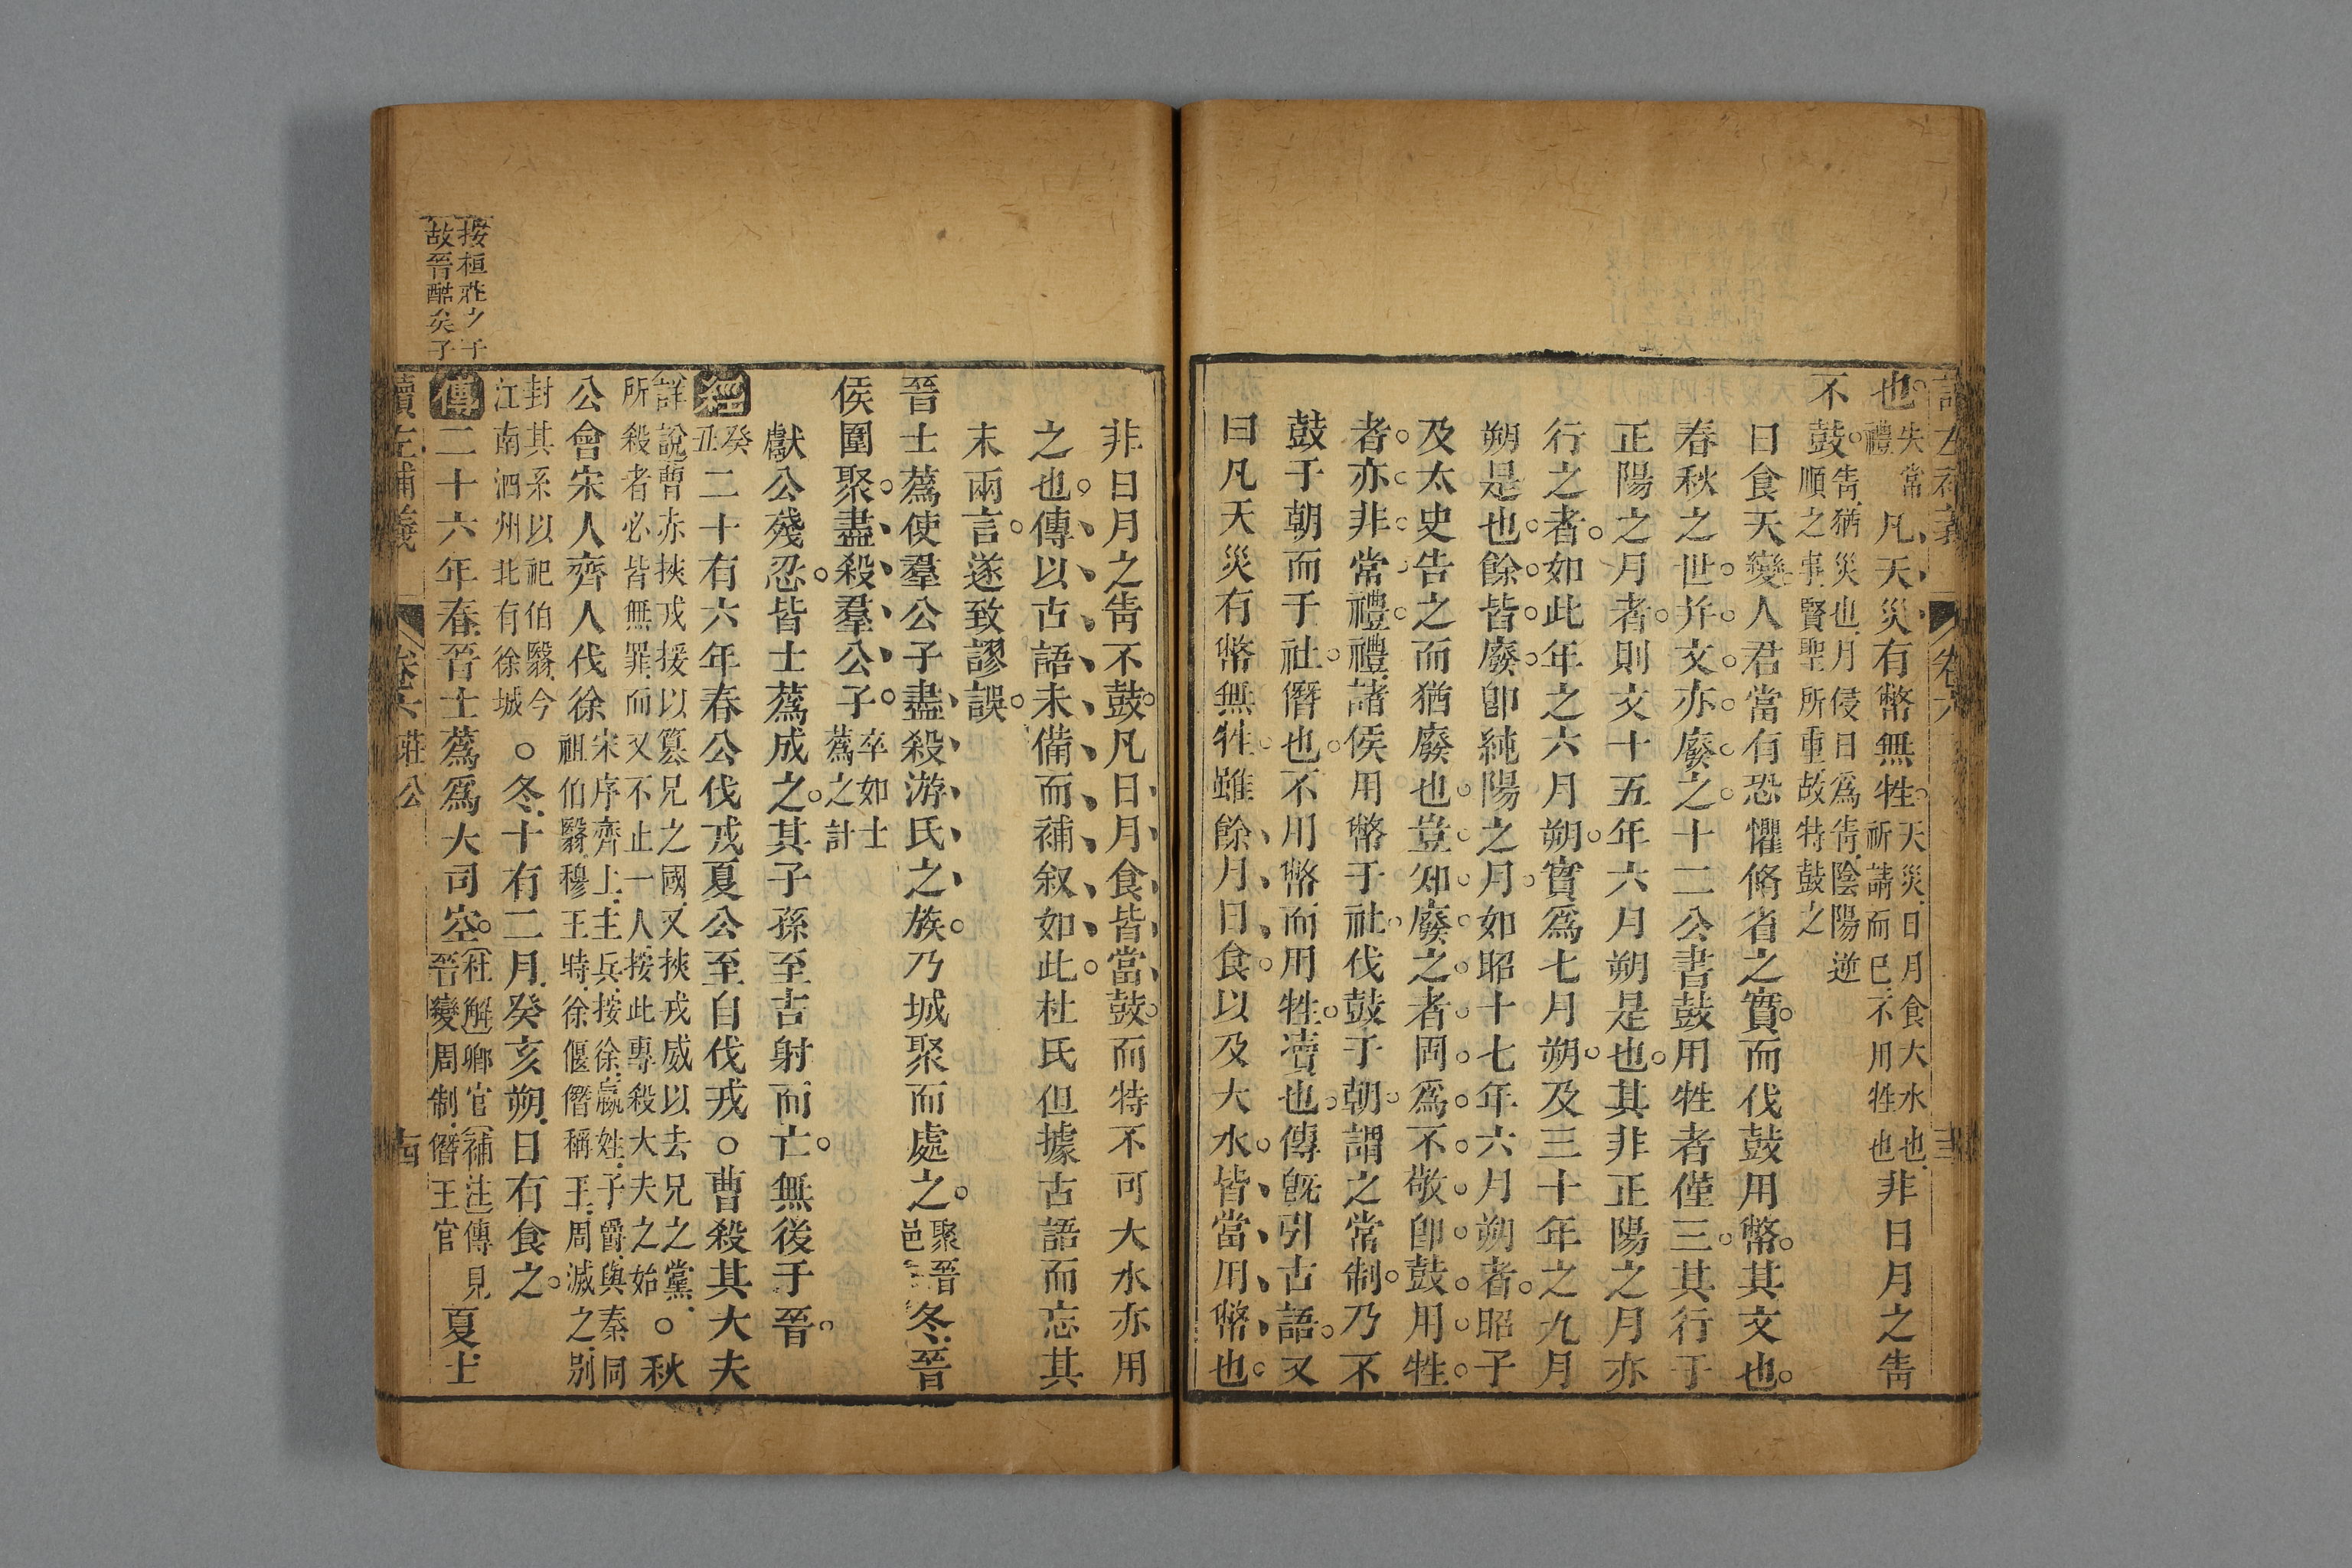 讀左補義 卷六 三
也。失常禮凡天災有幣無牲。天災日月食大水也祈請而已不用牲也非日月之眚
不鼓。眚猶災也月侵日爲眚陰陽逆順之事賢聖所重故特鼓之
日食天變人君當有恐懼脩省之實。而伐鼓用幣。其文也。
春秋之世。并文亦廢之。十二公書鼓用牲者僅三。其行于
正陽之月者。則文十五年六月朔是也。其非正陽之月亦
行之者。如此年之六月朔。實爲七月朔。及三十年之九月
朔是也。餘皆廢。卽純陽之月。如昭十七年六月朔者。昭子
及太史告之而猶廢也。豈知廢之者。罔爲不敬。卽鼓用牲。
者。亦非常禮。禮諸侯用幣于社。伐鼓于朝。謂之常制。乃不
鼓于朝而于社。僭也。不用幣而用牲。凟也。傳旣引古語。又
曰凡天災有幣無牲。雖餘月日食。以及大水。皆當用幣也。
非日月之眚不鼓。凡日月食皆當鼓。而特不可大水亦用
之也。傳以古語未備而補叙如此。杜氏但據古語而忘其
末兩言。遂致謬誤。
晉士蔿使羣公子盡殺游氏之族。乃城聚而處之。聚晉邑冬晉
侯圍聚。盡殺羣公子。卒如士蔿之計
獻公殘忍。皆士蔿成之。其子孫至吉射而亡。無後于晉。
經癸丑二十有六年春公伐戎夏公至自伐戎○曹殺其大夫
詳說曹赤挾戎援以簒兄之國又挾戎威以去兄之黨所殺者必皆無罪而又不止一人按此專殺大夫之始○秋
公會宋人齊人伐徐宋序齊上主兵按徐嬴姓子爵與秦同祖伯翳穆王時徐偃僭稱王周滅之別
封其系以祀伯翳今江南泗州北有徐城○冬十有二月癸亥朔日有食之。
傳二十六年春晉士蔿爲大司空。杜解卿官補注傳見晉變周制僭王官夏士
讀左補義 卷六 莊公 古
按桓莊之子
故晉酷矣子